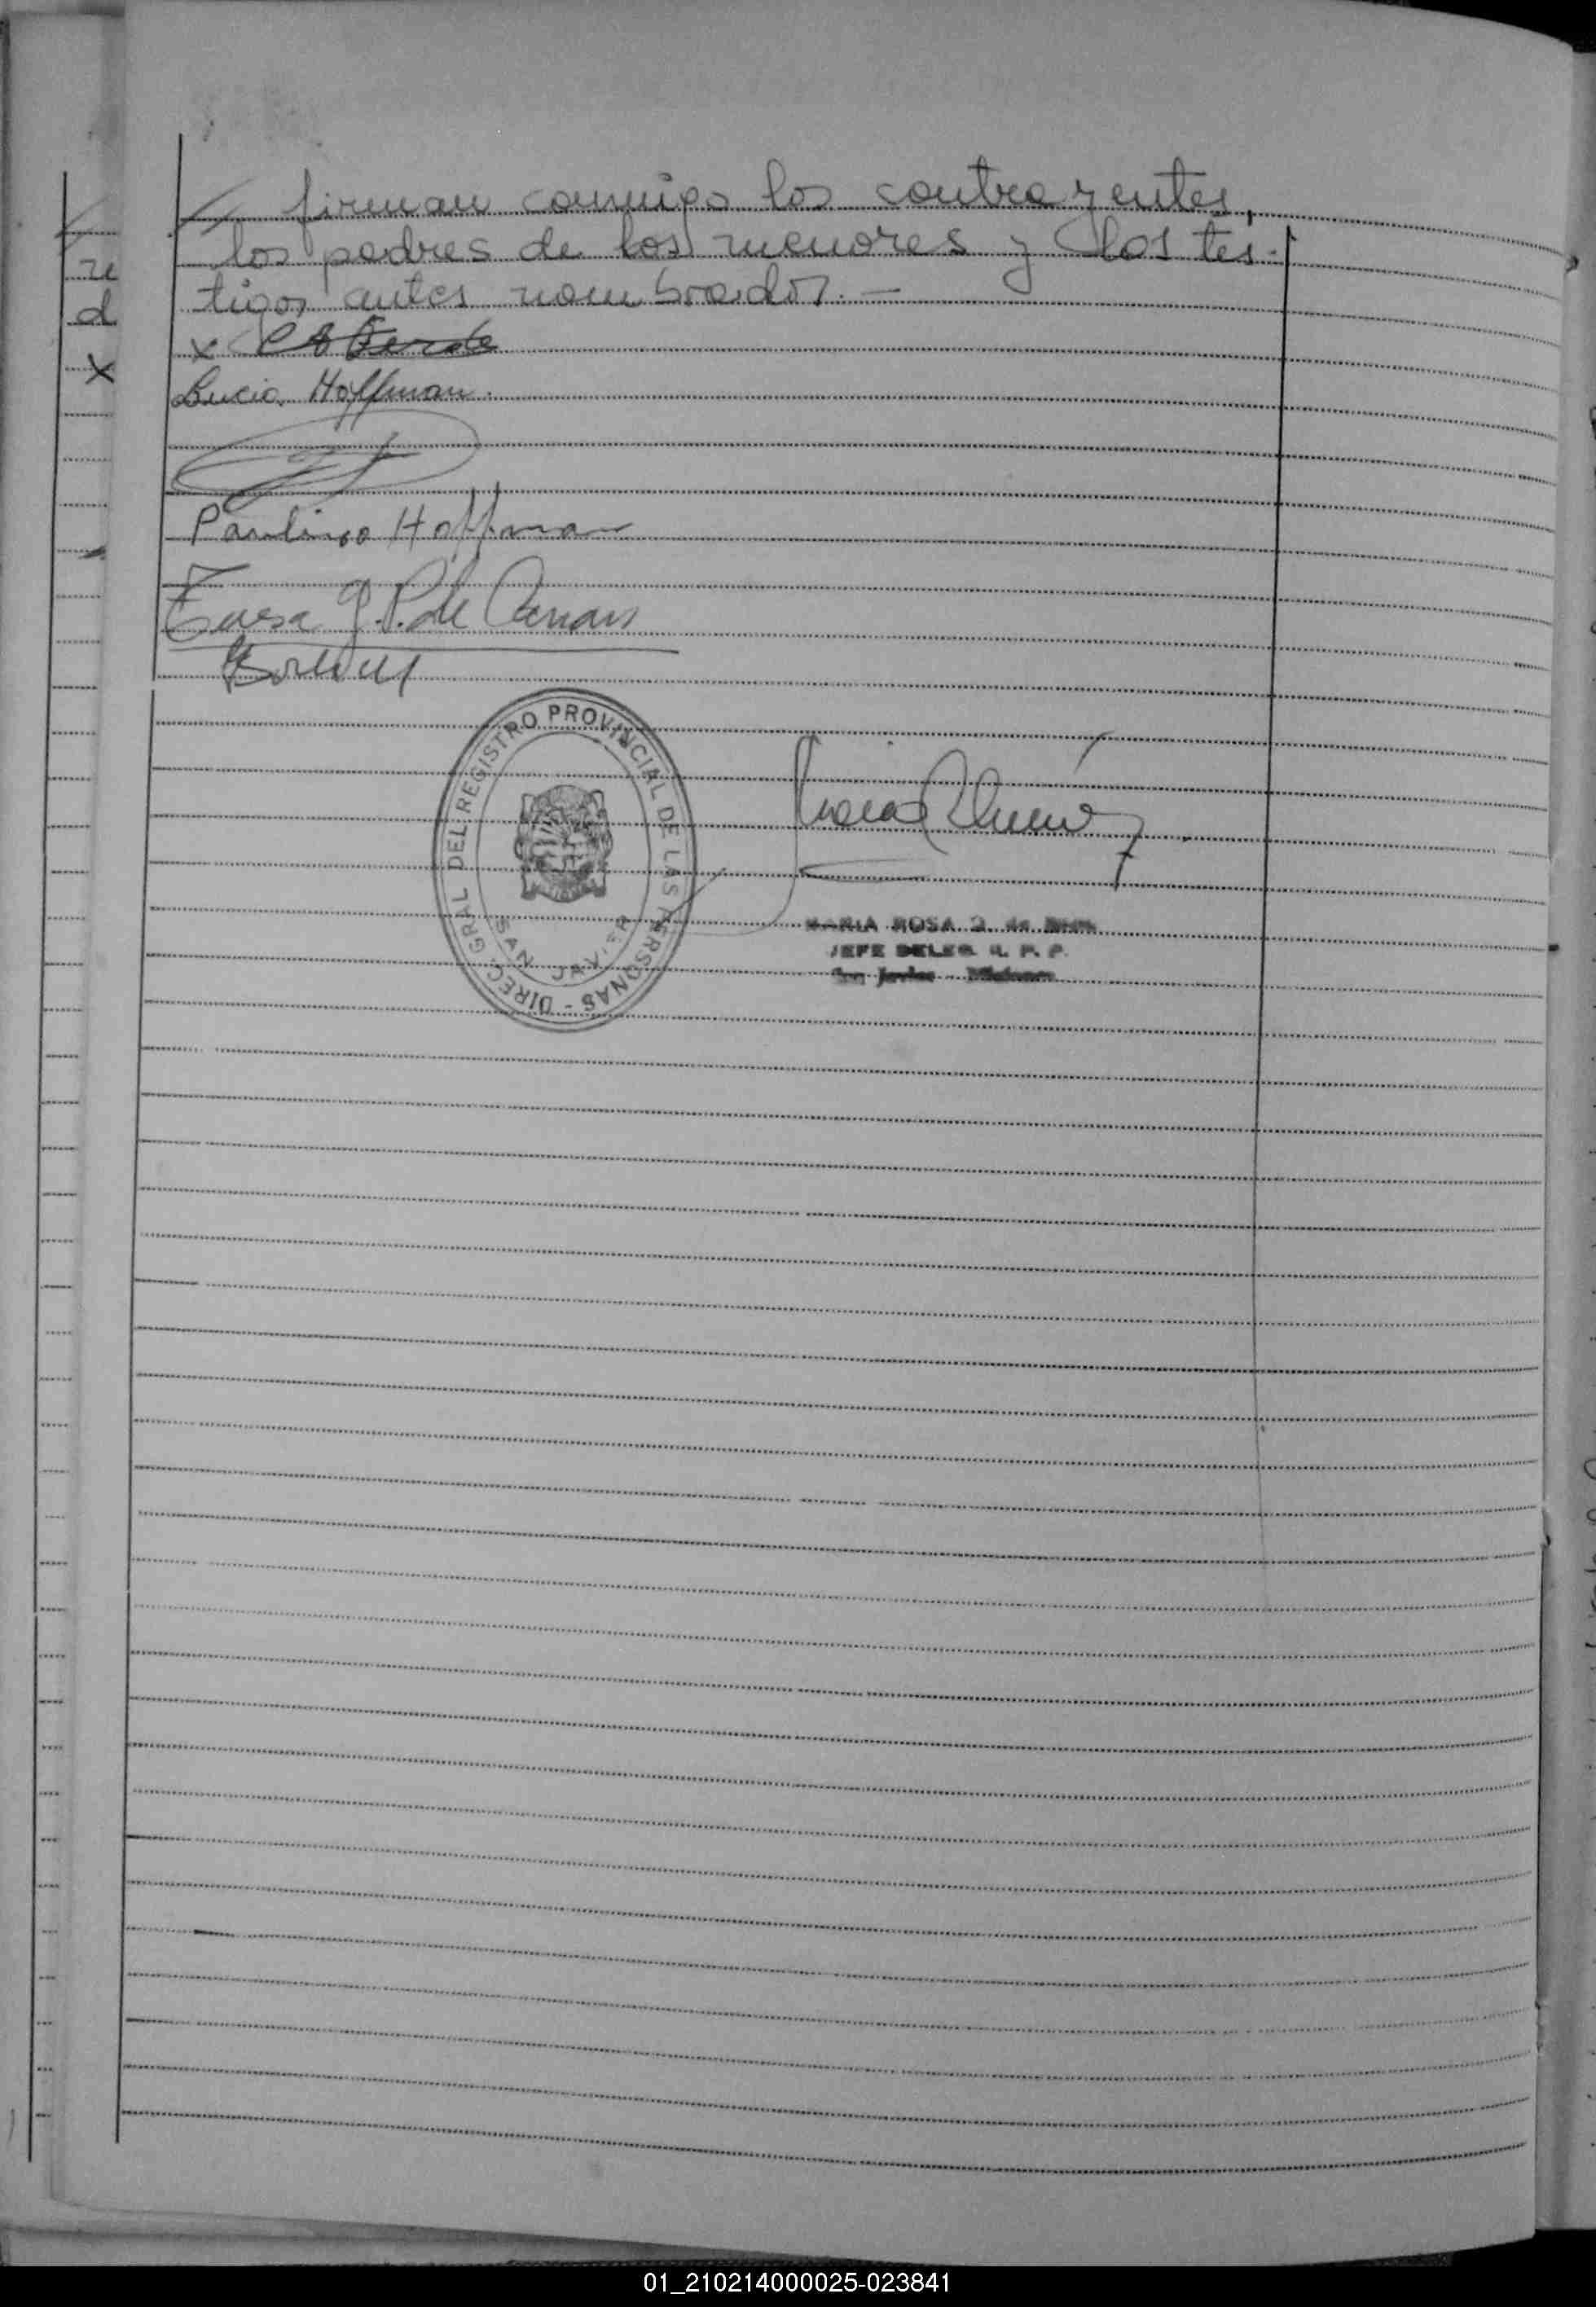 // firman conmigo los contrayentes,
los padres de los menores y los tes-
tigos antes nombrados. —
x
Lucia Hoffman.
Paulino Hoffman
J. P. de
DIREC. GRAL DEL REGISTRO PROVINCIAL DE LAS PERSONAS -
SAN JAVIER
MARIA ROSA
JEFE DELEG. R. P. P.
San Javier - Misiones
re
d
x
01_210214000025-023841